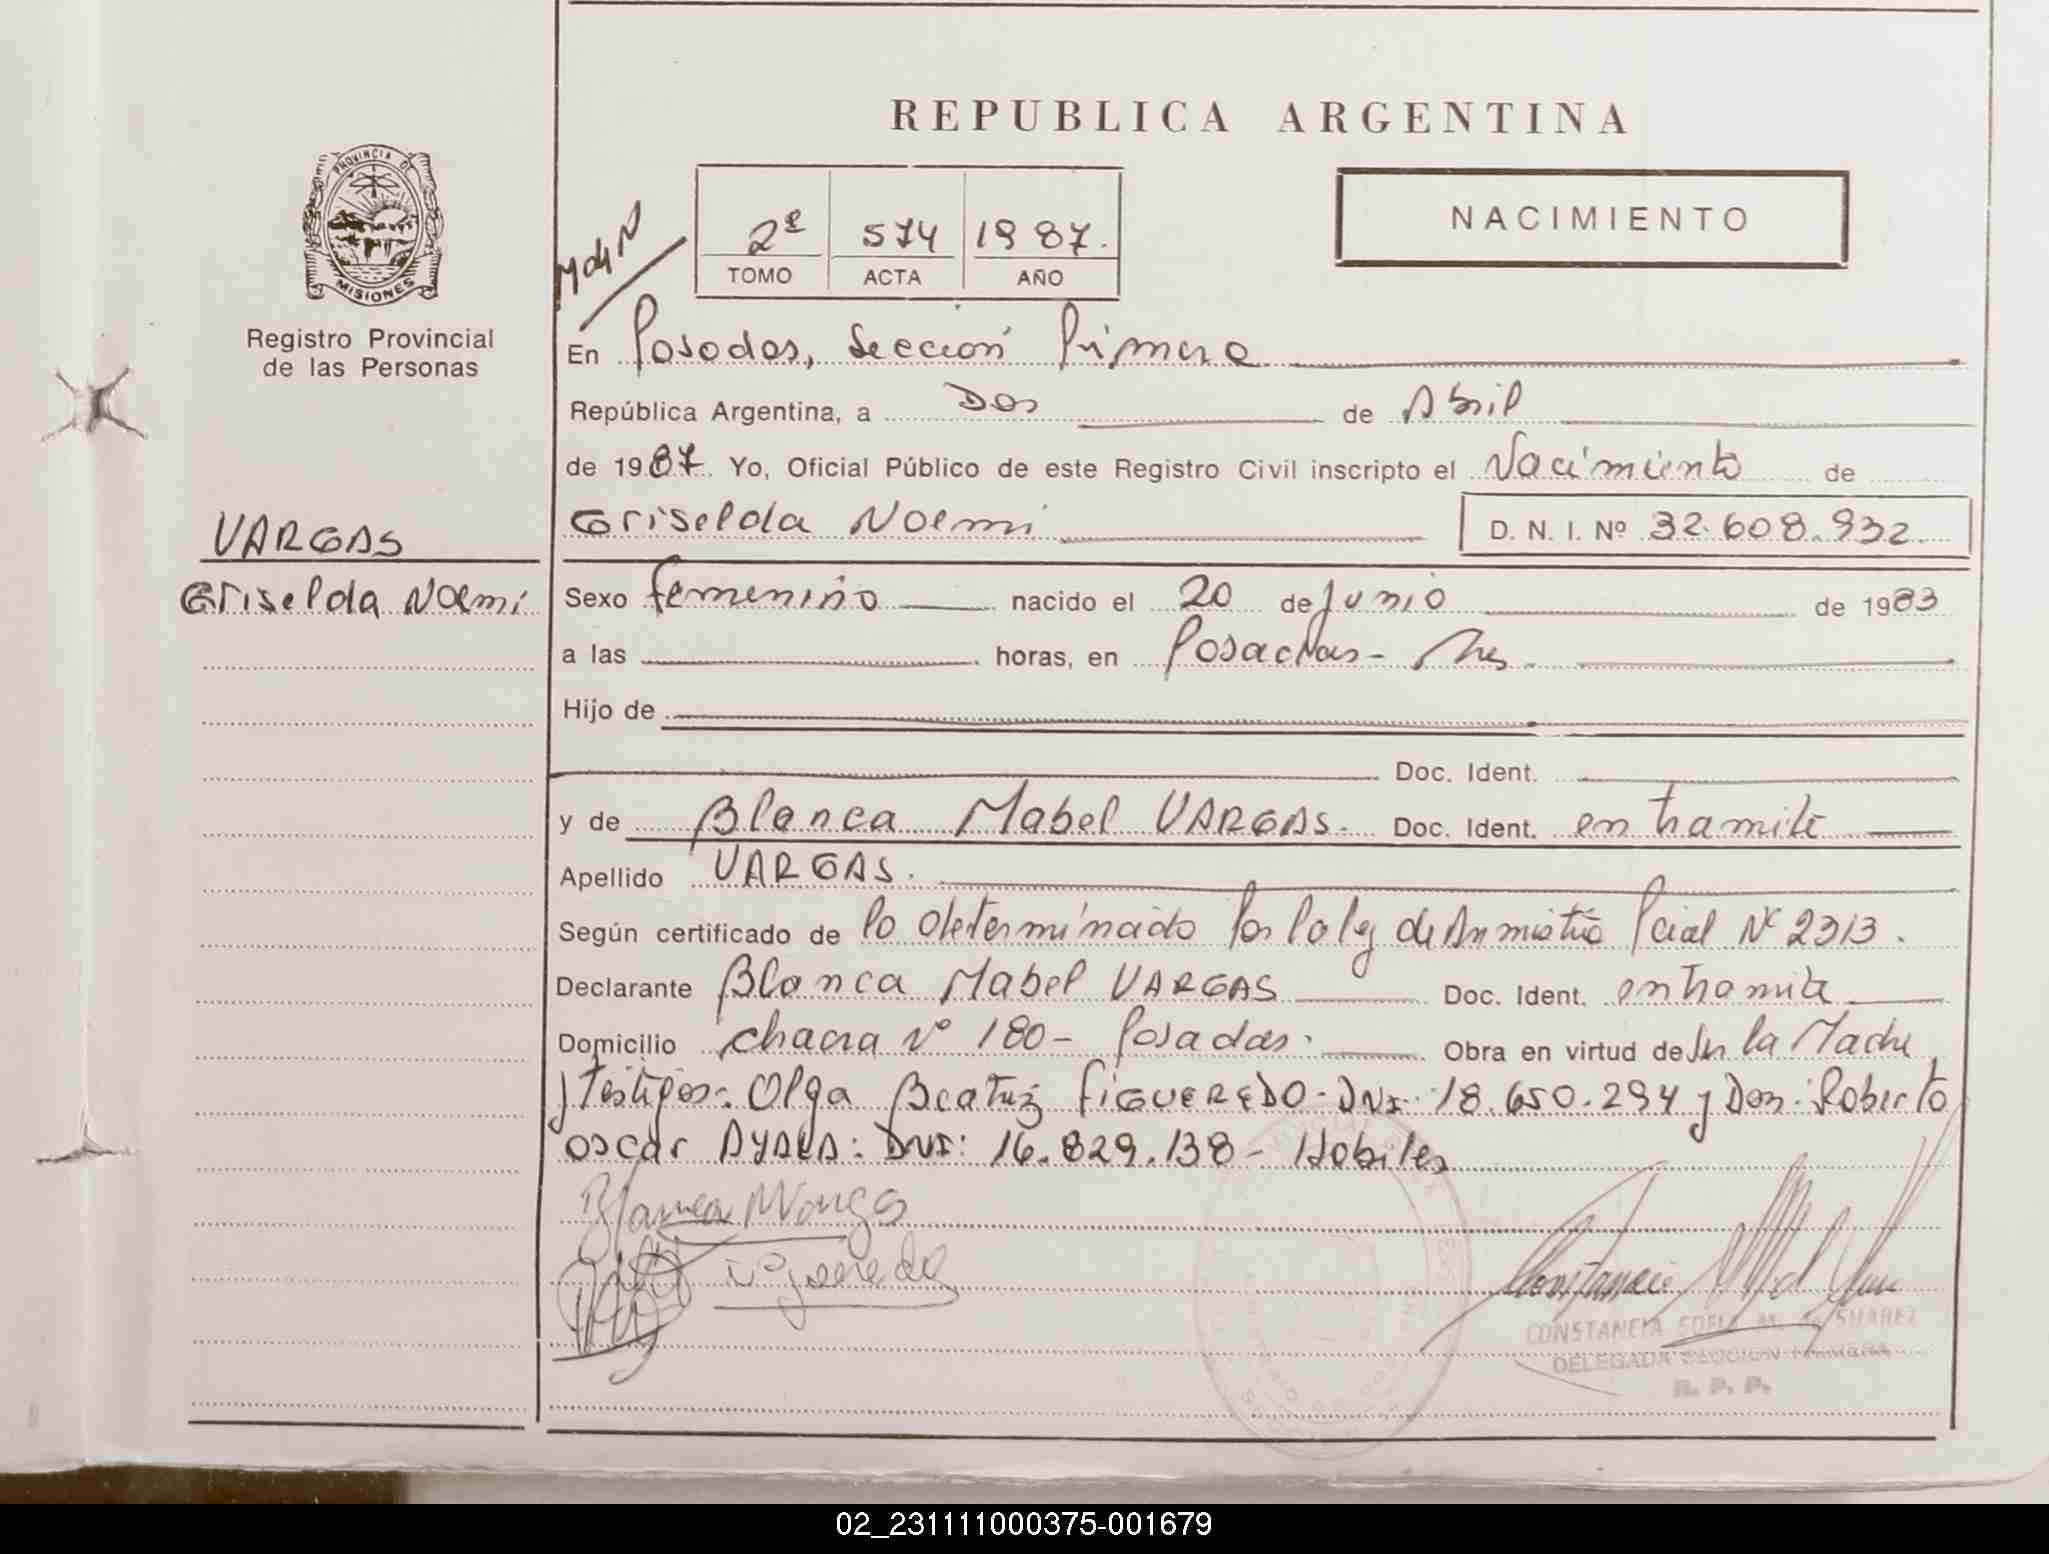 REPUBLICA ARGENTINA
PROVINCIA DE
MISIONES
Registro Provincial
de las Personas
2º 574 1987.
TOMO ACTA AÑO
NACIMIENTO
En Posadas, Sección Primera
República Argentina, a Dos de Abril
de 1987 Yo, Oficial Público de este Registro Civil inscripto el Nacimiento de
VARGAS
Griselda Noemi
Griselda Noemi D. N. I. Nº 32.608.932
Sexo femenino nacido el 20 de Junio de 1983
a las horas, en Posadas - Mnes.
Hijo de
Doc. Ident.
y de Blanca Mabel VARGAS. Doc. Ident. en tramite
Apellido VARGAS.
Según certificado de lo determinado por la ley de Amnistia Pcial Nº 2313.
Declarante Blanca Mabel VARGAS Doc. Ident. en tramite
Domicilio chacra Nº 180 - Posadas. Obra en virtud de ser la Madre
y testigos: Olga Beatriz FIGUEREDO - DNI: 18.650.294 y Don: Roberto
Oscar AYALA: DNI: 16.829.138 - Habiles
Blanca M Vargas
Figueredo
CONSTANCIA M. de SUAREZ
DELEGADA SECCION PRIMERA
R. P. P.
02_231111000375-001679